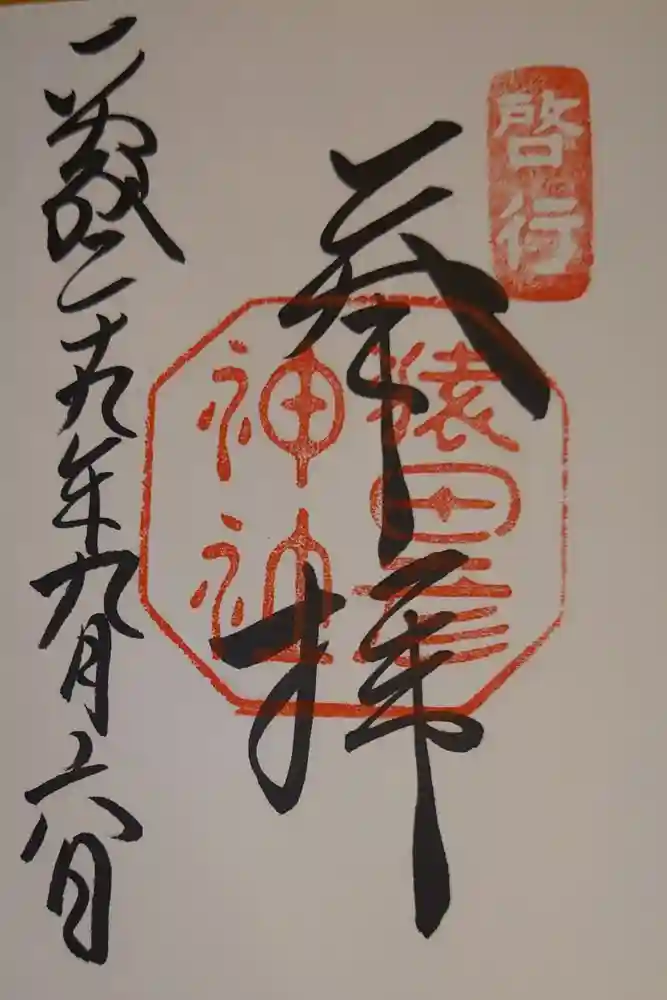 啓行
奉拝
猿田彦
神社
平成二十九年九月六日